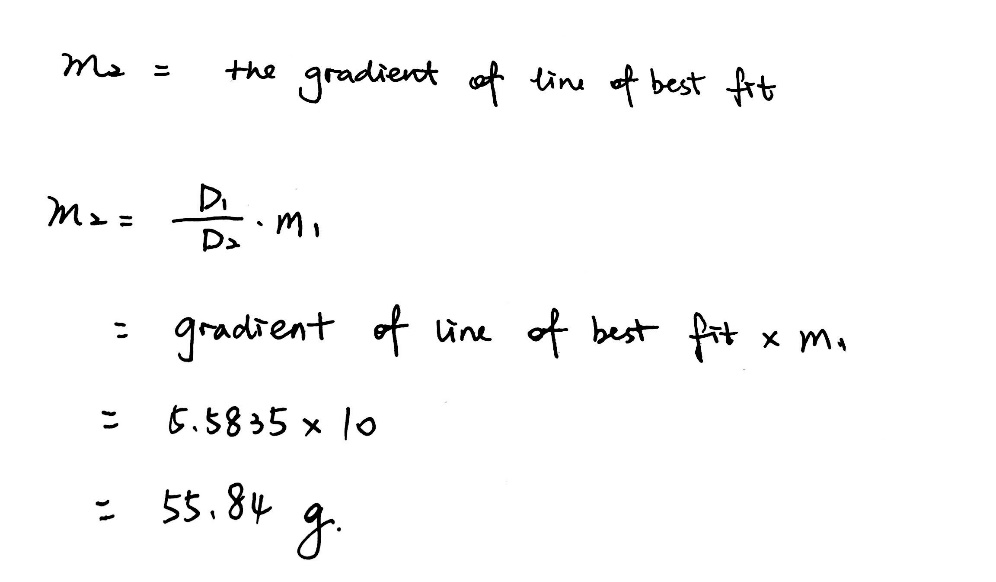 m₂ = the gradient of line of best fit
m₂ = D₁/D₂ · m₁
= gradient of line of best fit × m₁
= 5.5835 × 10
= 55.84 g.